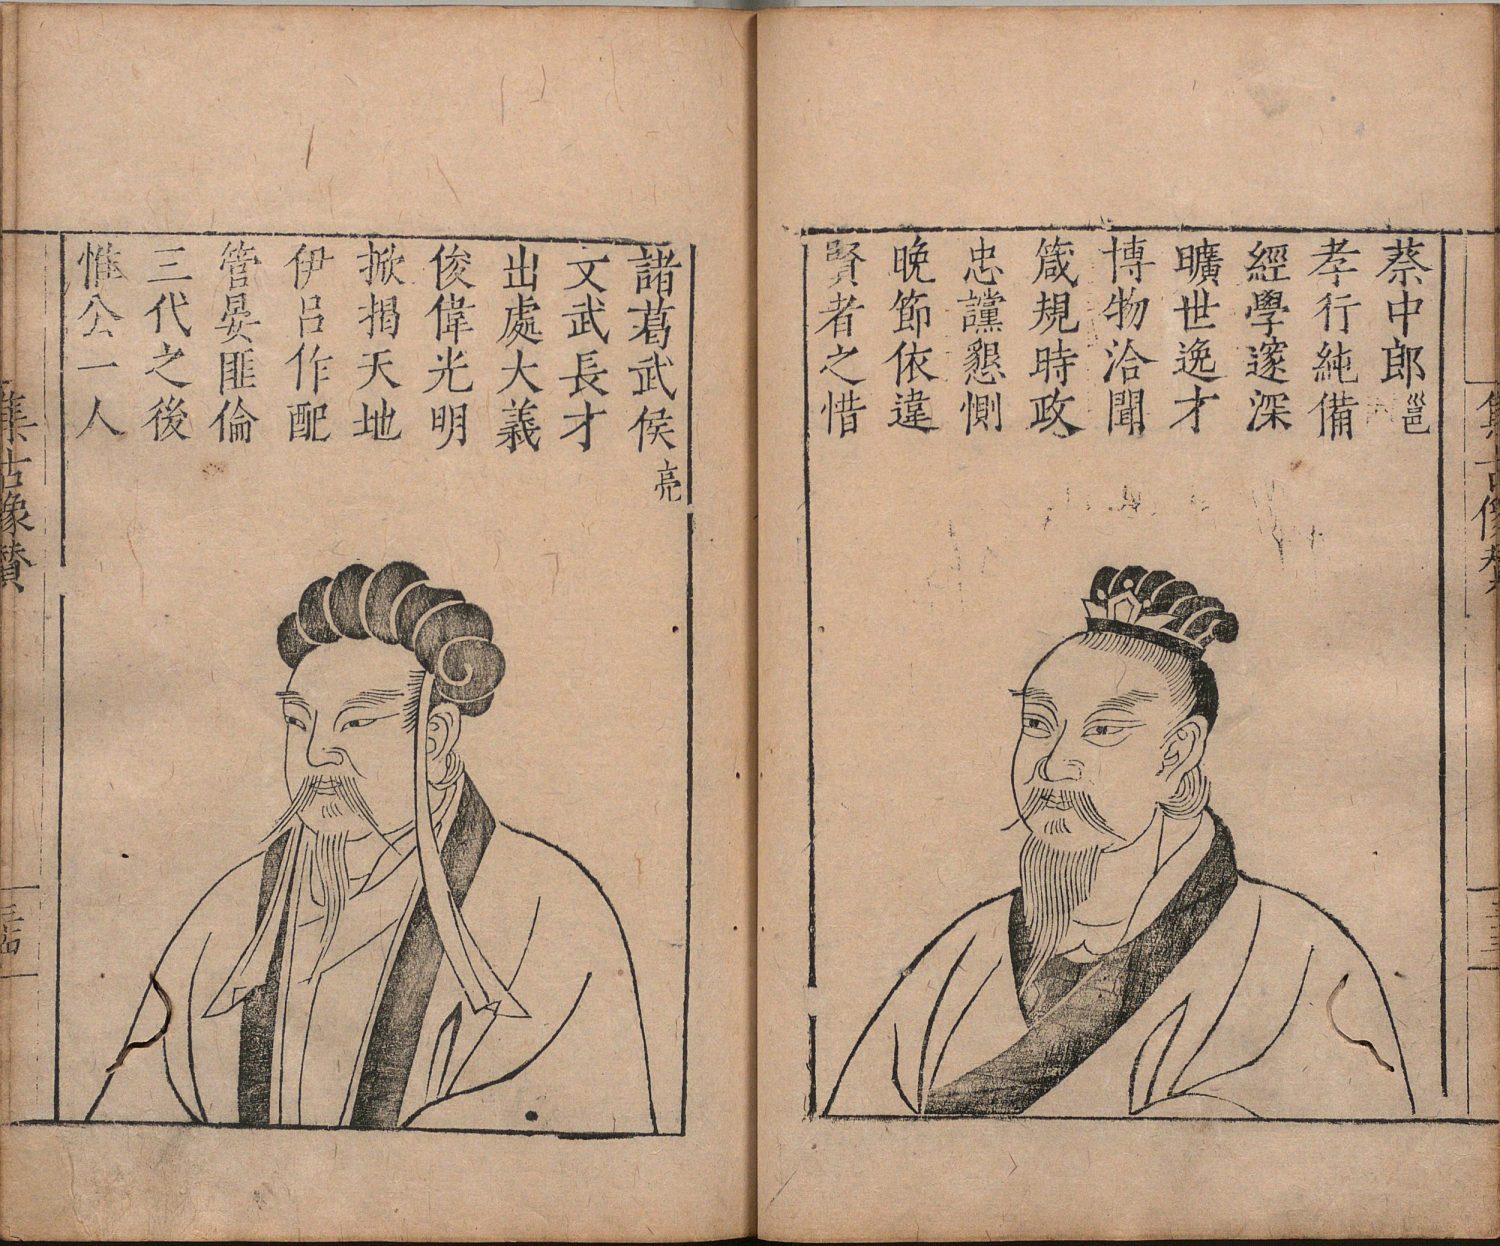 蔡中郎邕
孝行純備
經學邃深
曠世逸才
博物洽聞
箴規時政
忠讜懇惻
晚節依違
賢者之惜
諸葛武侯亮
文武長才
出處大義
俊偉光明
掀揭天地
伊呂作配
管晏匪倫
三代之後
惟公一人
集古像贊